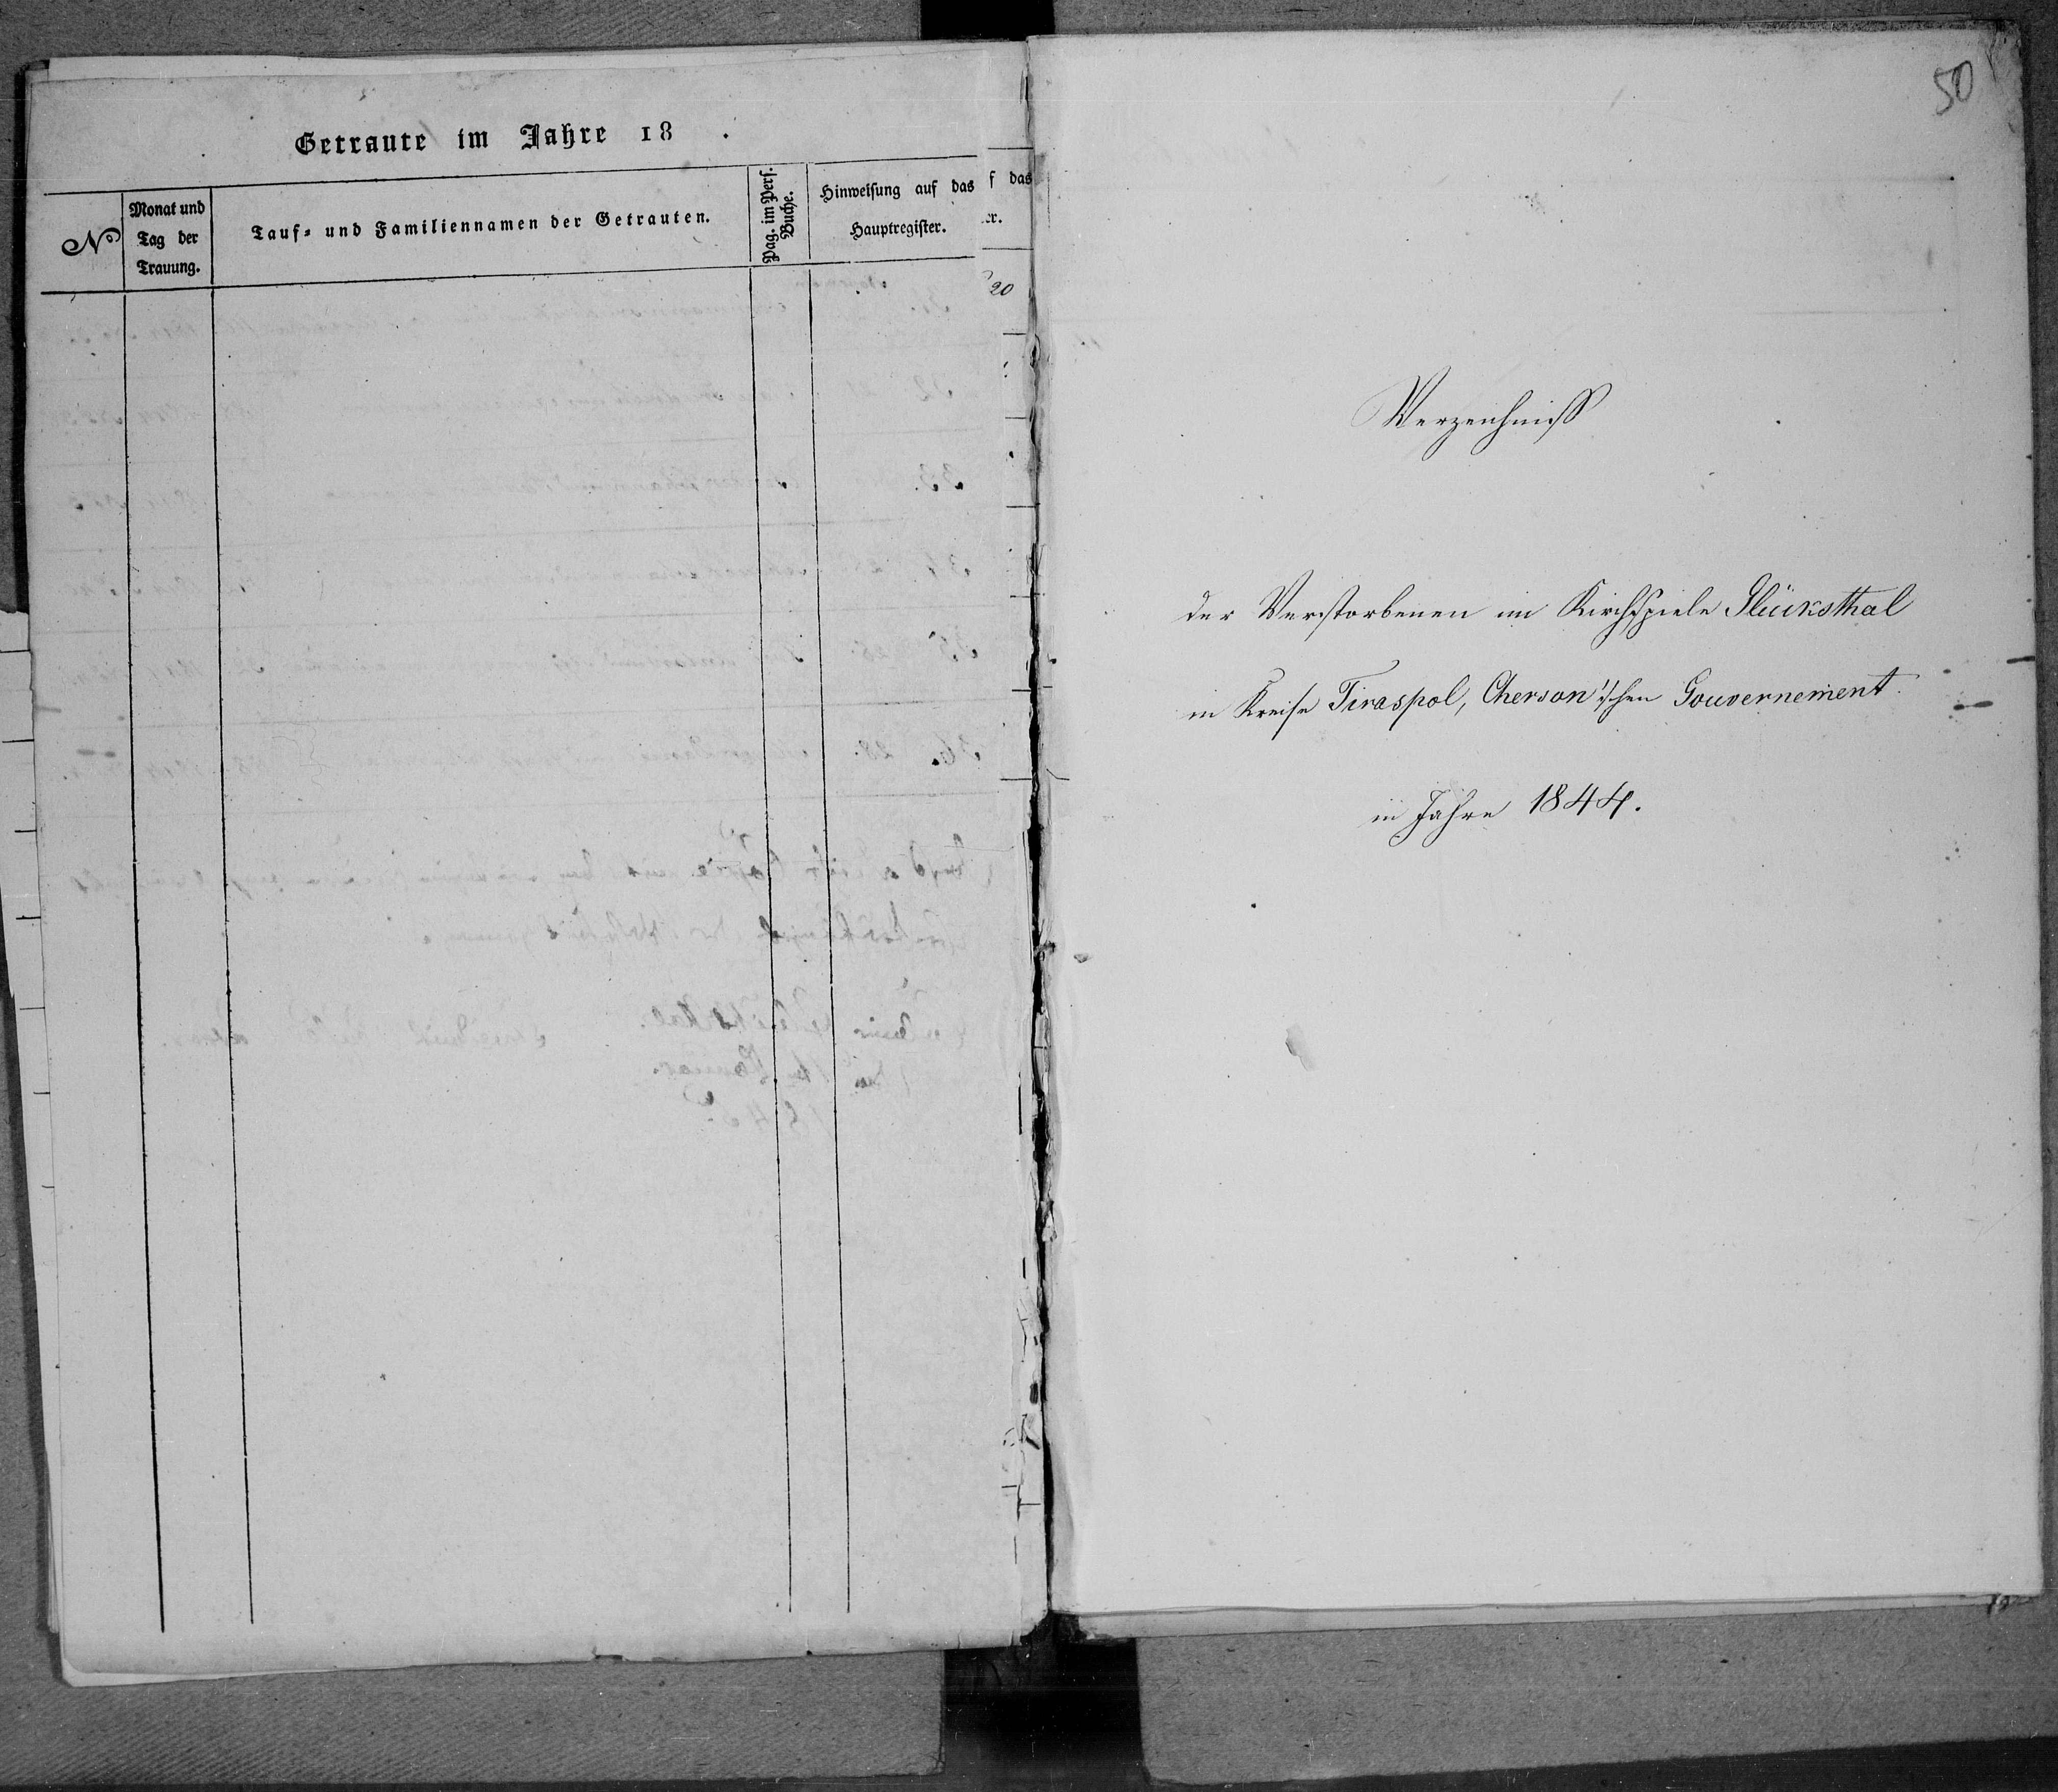 Getraute im Jahre 18 .
No
Monat und
Tag der
Trauung.
Tauf- und Familiennamen der Getrauten.
Pag. im Pers.
Buche.
Hinweisung auf das
Hauptregister.
f das
er.
20
50
Verzeichniß
der Verstorbenen im Kirchspiele Glücksthal
im Kreise Tiraspol, Cherson'schen Gouvernement.
im Jahre 1844.